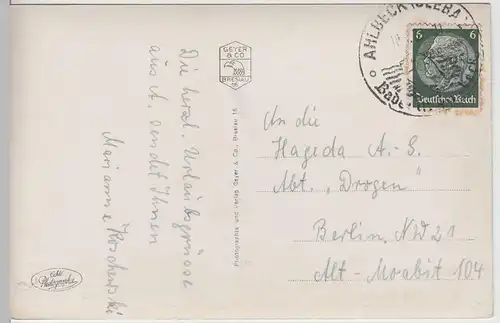 Die herzl. Urlaubsgrüsse
aus A. sendet Ihnen
Marianne Koschewski
GEYER
& CO
BRESLAU
16
Photographie und Verlag Geyer & Co., Breslau 16
Echte
Photographie
AHLBECK (SEEBAD
6 6
Deutsches Reich
An die
Hageda A.-G.
Abt. „Drogen"
Berlin, NW 21
Alt-Moabit 104